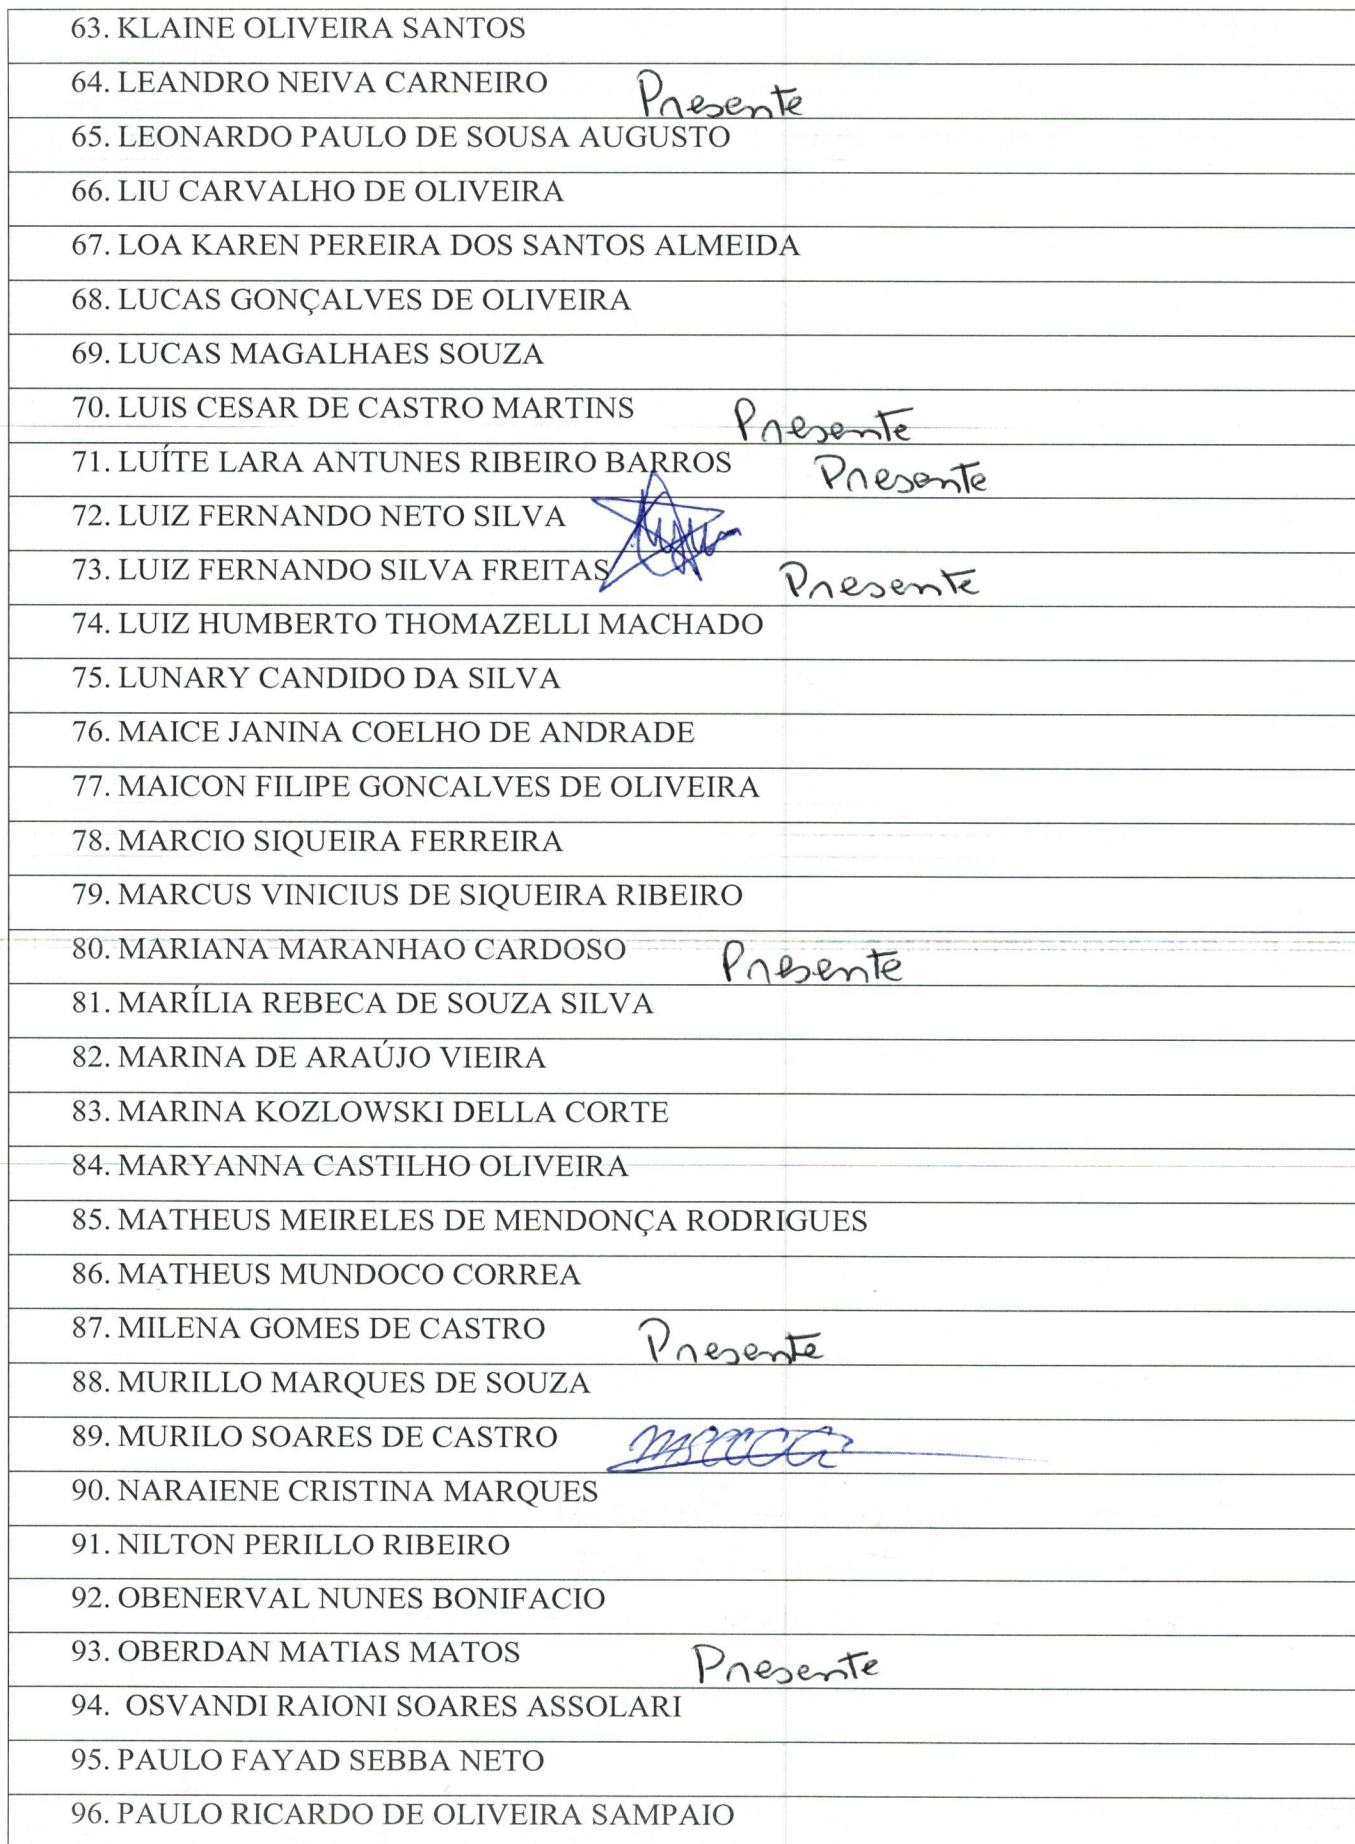 63. KLAINE OLIVEIRA SANTOS
64. LEANDRO NEIVA CARNEIRO Presente
65. LEONARDO PAULO DE SOUSA AUGUSTO
66. LIU CARVALHO DE OLIVEIRA
67. LOA KAREN PEREIRA DOS SANTOS ALMEIDA
68. LUCAS GONÇALVES DE OLIVEIRA
69. LUCAS MAGALHAES SOUZA
70. LUIS CESAR DE CASTRO MARTINS Presente
71. LUÍTE LARA ANTUNES RIBEIRO BARROS Presente
72. LUIZ FERNANDO NETO SILVA
73. LUIZ FERNANDO SILVA FREITAS Presente
74. LUIZ HUMBERTO THOMAZELLI MACHADO
75. LUNARY CANDIDO DA SILVA
76. MAICE JANINA COELHO DE ANDRADE
77. MAICON FILIPE GONCALVES DE OLIVEIRA
78. MARCIO SIQUEIRA FERREIRA
79. MARCUS VINICIUS DE SIQUEIRA RIBEIRO
80. MARIANA MARANHAO CARDOSO Presente
81. MARÍLIA REBECA DE SOUZA SILVA
82. MARINA DE ARAÚJO VIEIRA
83. MARINA KOZLOWSKI DELLA CORTE
84. MARYANNA CASTILHO OLIVEIRA
85. MATHEUS MEIRELES DE MENDONÇA RODRIGUES
86. MATHEUS MUNDOCO CORREA
87. MILENA GOMES DE CASTRO Presente
88. MURILLO MARQUES DE SOUZA
89. MURILO SOARES DE CASTRO
90. NARAIENE CRISTINA MARQUES
91. NILTON PERILLO RIBEIRO
92. OBENERVAL NUNES BONIFACIO
93. OBERDAN MATIAS MATOS Presente
94. OSVANDI RAIONI SOARES ASSOLARI
95. PAULO FAYAD SEBBA NETO
96. PAULO RICARDO DE OLIVEIRA SAMPAIO